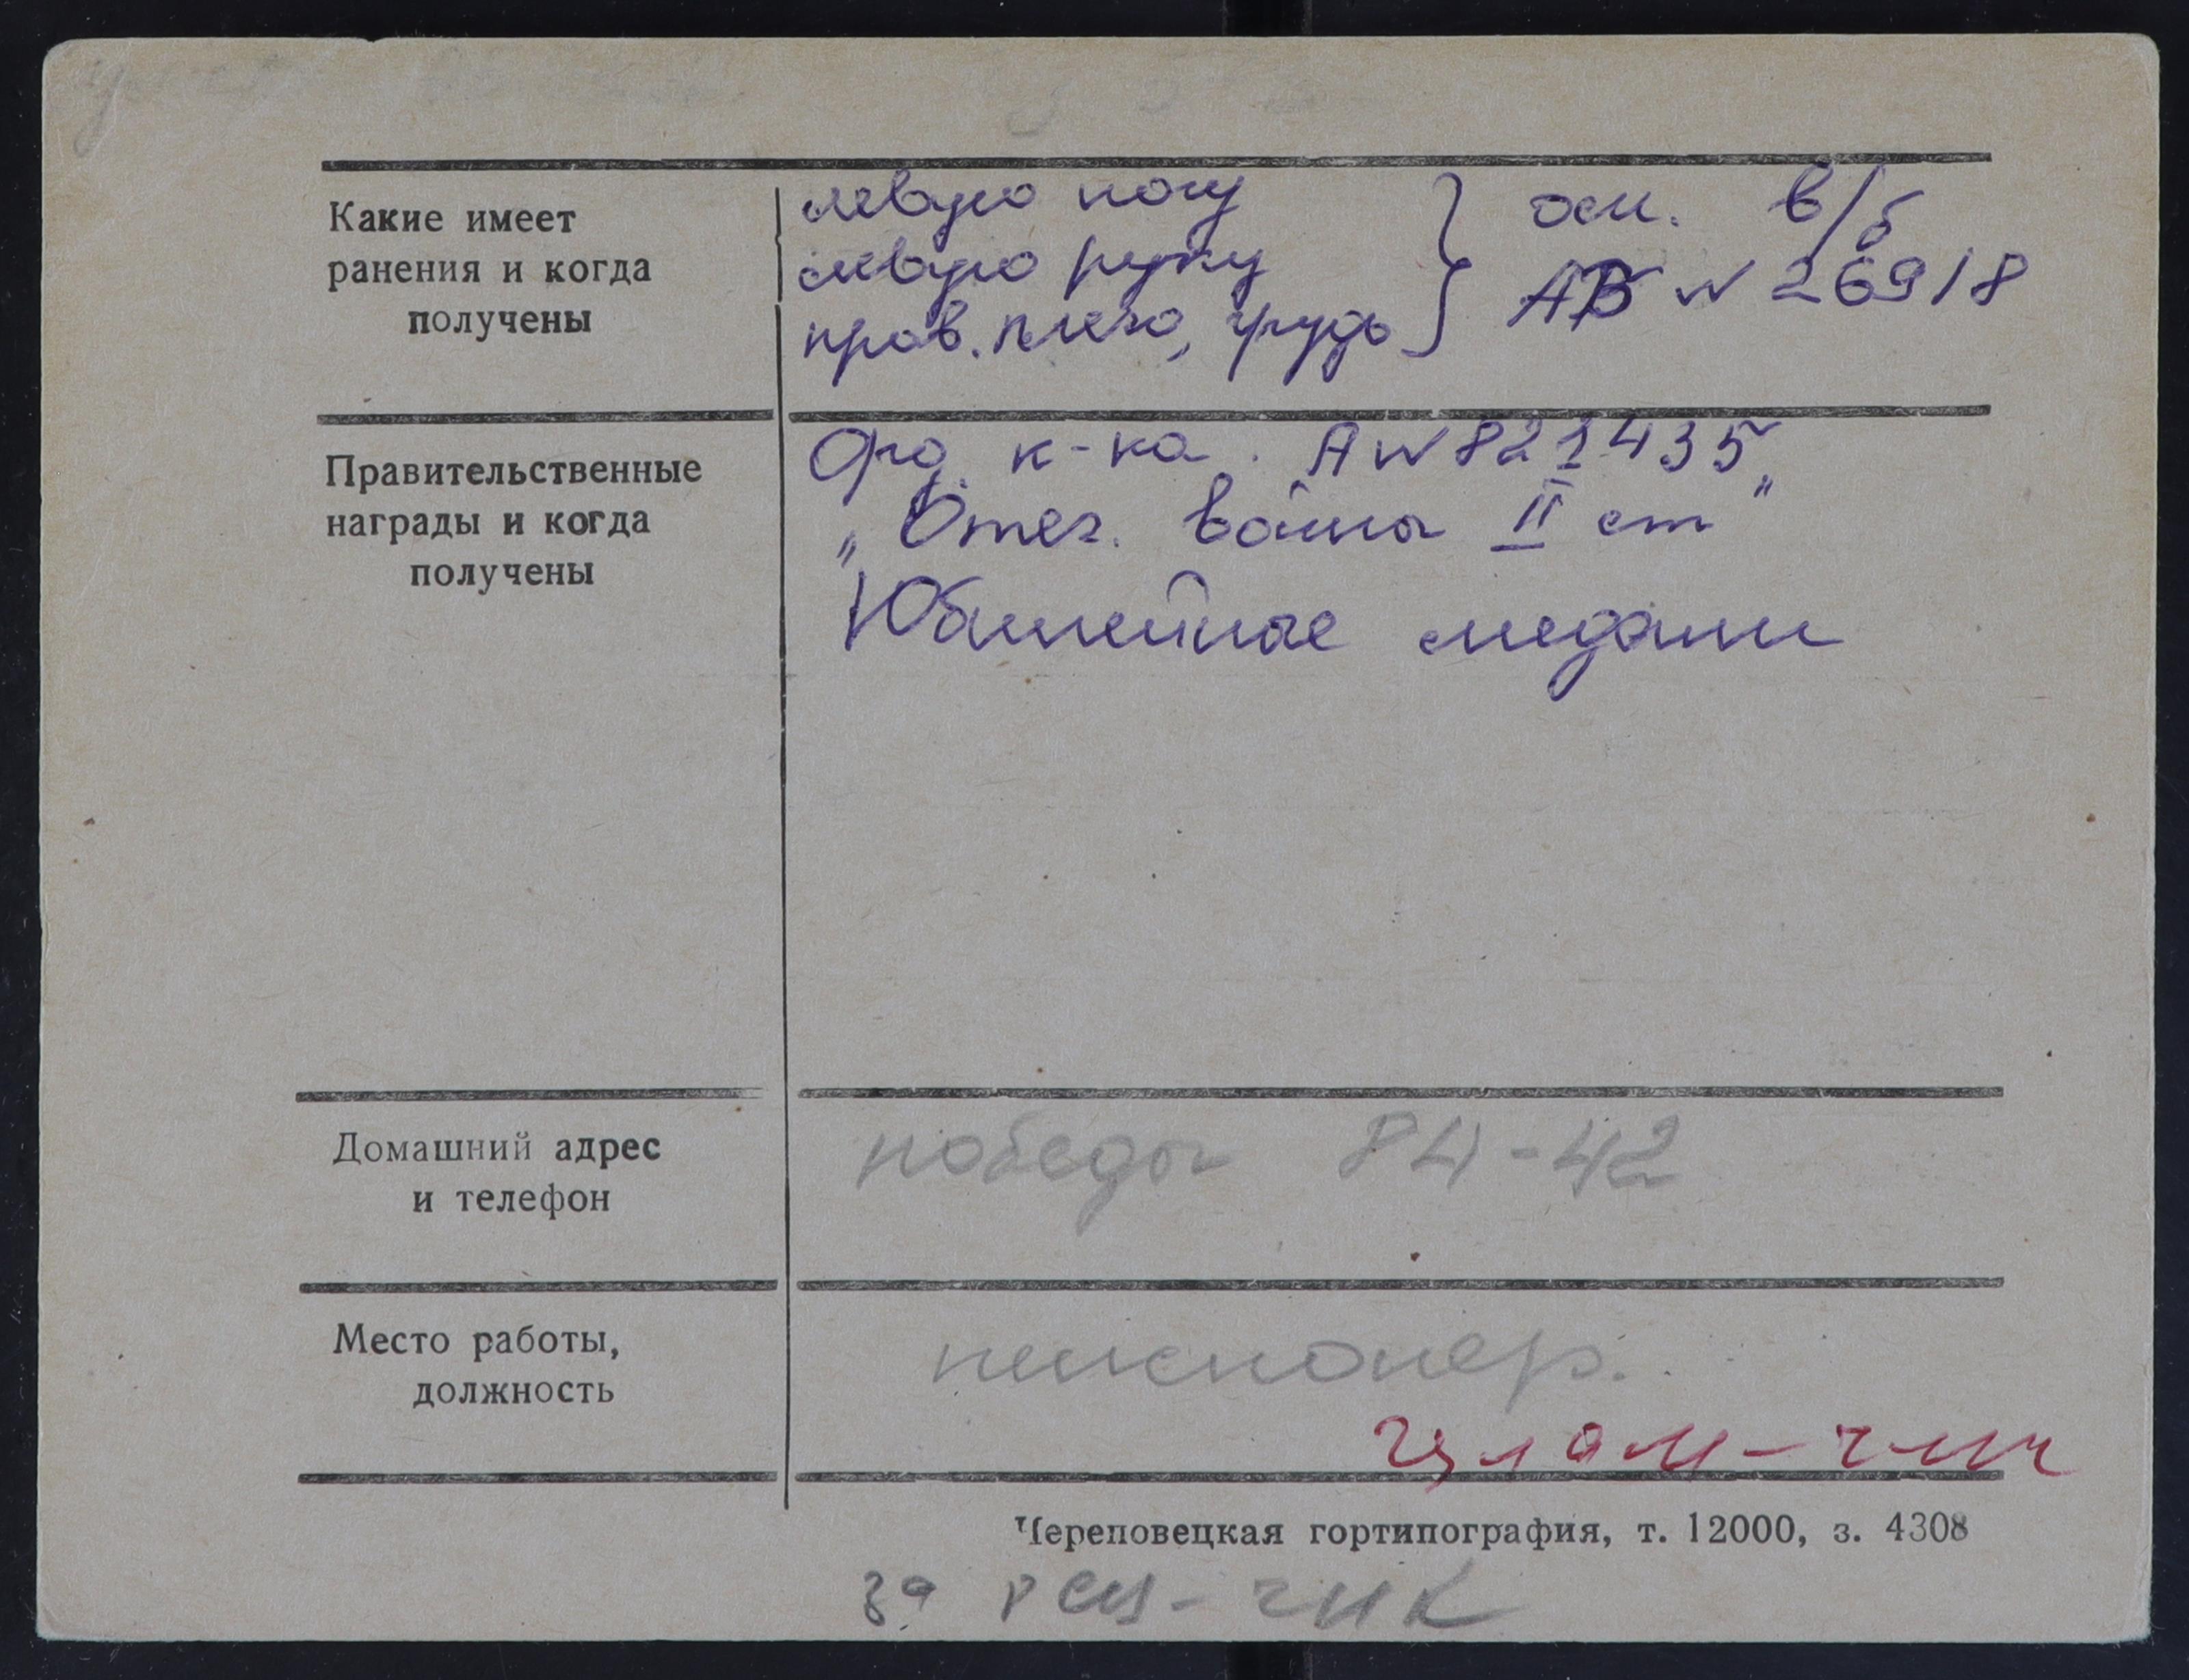 Какие имеет
ранения и когда
получены
левую ногу
левую руку
прав. плечо, грудь
осн. в/б
АВ № 26918
Правительственные
награды и когда
получены
Орд. к-ка. А № 821435
„Отеч. войны II ст"
Юбилейные медали
Домашний адрес
и телефон
победы 84-42
Место работы,
должность
пенсионер.
Череповецкая гортипография, т. 12000, з. 4308